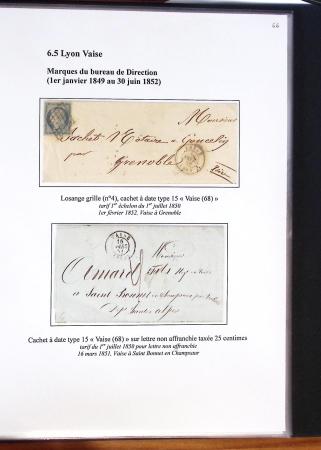 66
6.5 Lyon Vaise
Marques du bureau de Direction
(1er janvier 1849 au 30 juin 1852)
Monsieur
Sachet Notaire à Goncelin
par
Grenoble
(Isère)
Losange grille (n°4), cachet à date type 15 « Vaise (68) »
tarif 1er échelon du 1er juillet 1850
1er février 1852, Vaise à Grenoble
VAISE
16
Monsieur
Amard fils
à Saint Bonnet en Champsaur
Htes Alpes
Cachet à date type 15 « Vaise (68) » sur lettre non affranchie taxée 25 centimes
tarif du 1er juillet 1850 pour lettre non affranchie
16 mars 1851, Vaise à Saint Bonnet en Champsaur